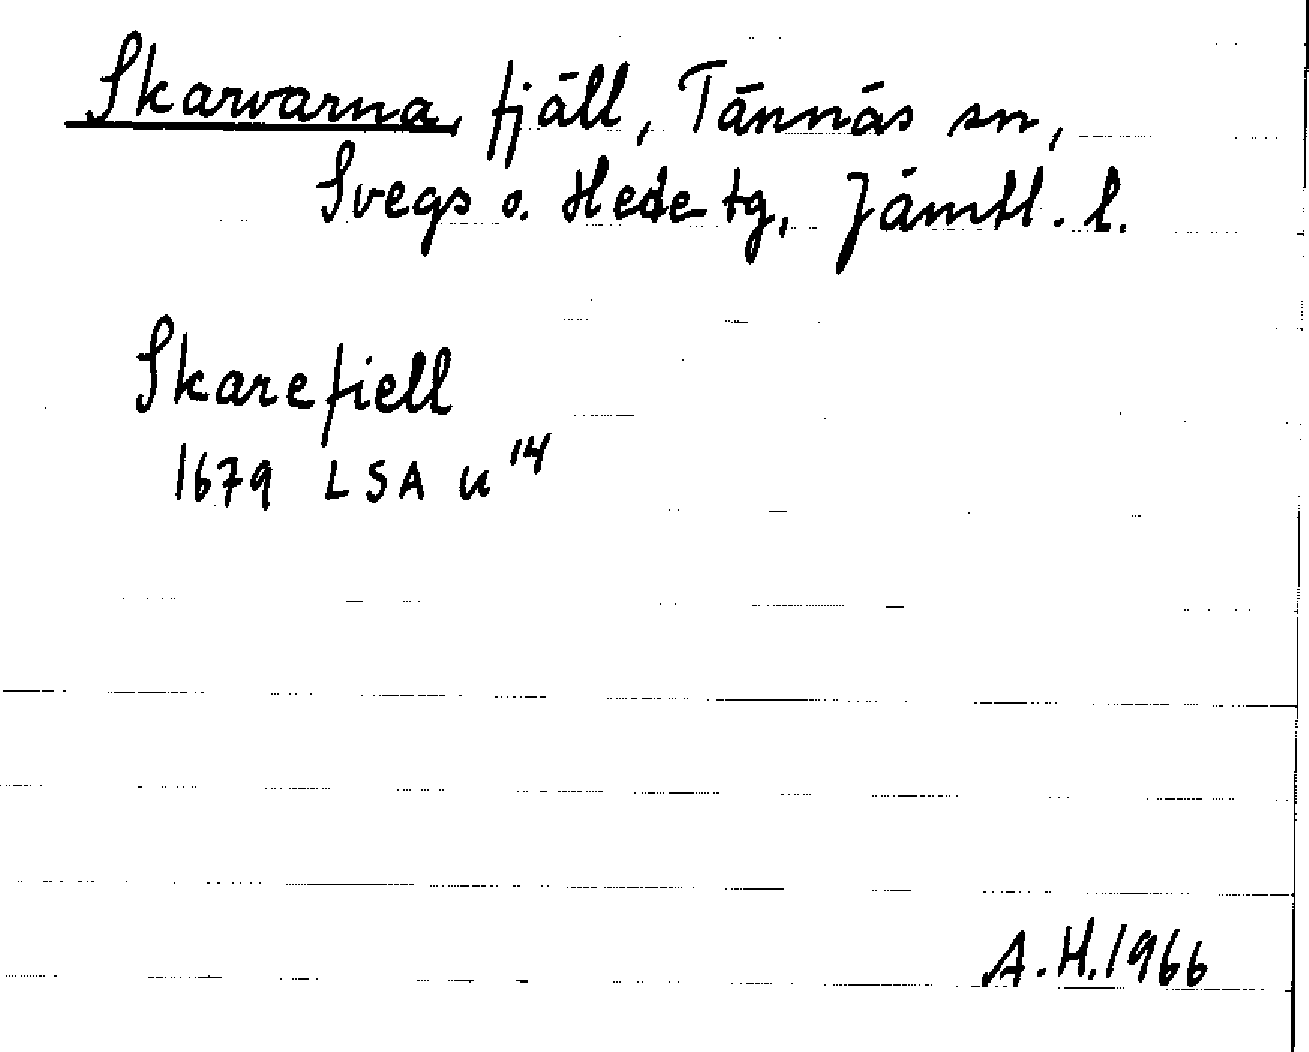 Skarvarna, fjäll, Tännäs sn,
Svegs o. Hede tg, Jämtl. l.
Skarefiell
1679 LSA U 14
A.H. 1966